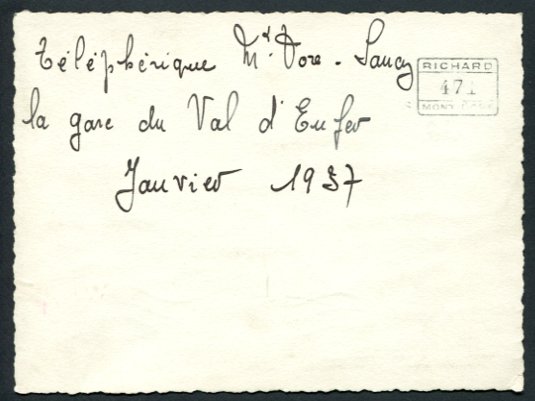 Téléphérique Mt Dore - Sancy
la gare du Val d'Enfer
Janvier 1937
RICHARD
471
MONT-DORE